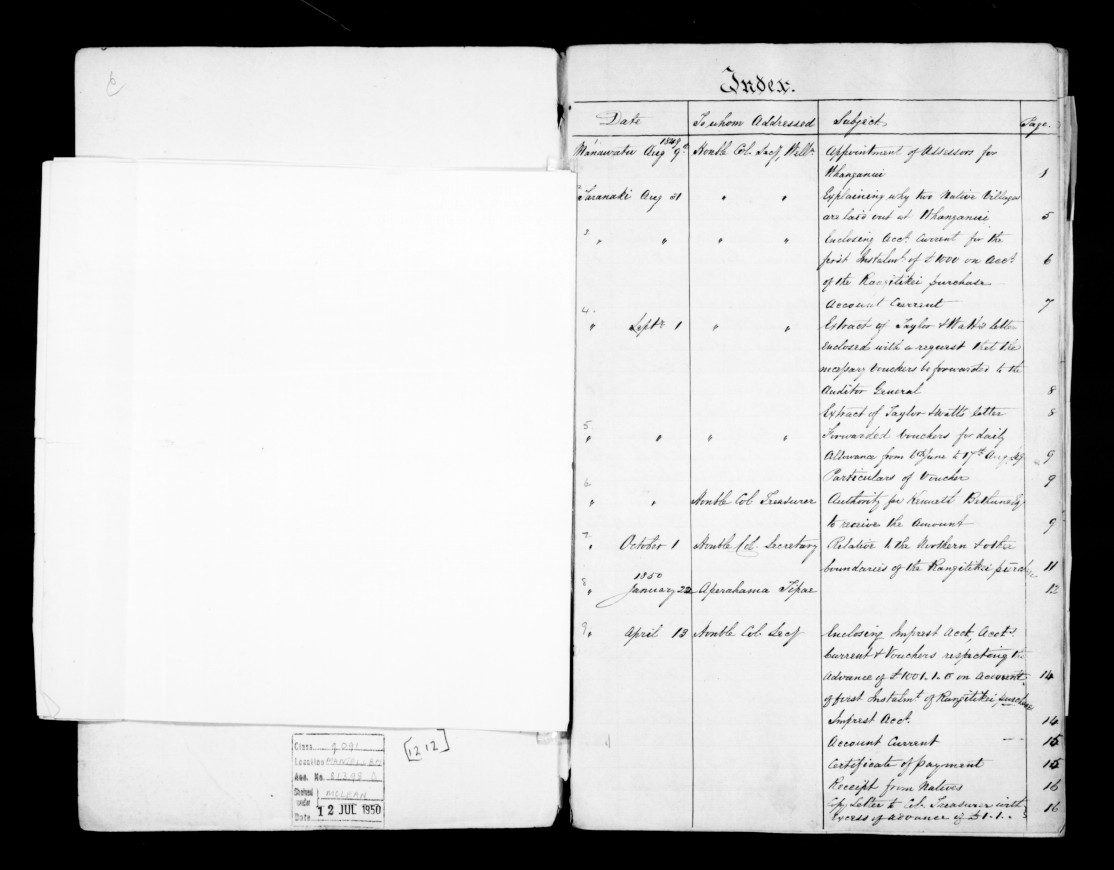 Class q 091
Location
Acc. No.
Shelved under MCLEAN
Date 12 JUL 1950
[1212]
Index.
Date To whom Addressed Subject Page.
1849
Manawatu Aug 9th Honble Col. Secy, Welln Appointment of Assessors for
Whanganui 1
Taranaki Aug 31 " " Explaining why two Native Villages
are laid out at Whanganui 5
3 " " " " Enclosing Acct. Current for the
first Instalmt of £1000 on Acct. 6
of the Rangitikei purchase
Account Current 7
4 " Septr 1 " " Extract of Taylor & Watts letter
enclosed with a request that the
necessary Vouchers be forwarded to the
Auditor General 8
Extract of Taylor & Watts letter 8
5 " " " " Forwarded Vouchers for daily
Allowance from 6 June to 17th Aug. 49 9
Particulars of Voucher 9
6 " " Honble Col Treasurer Authority for Kenneth Bethune Esq
to receive the Amount 9
7 " October 1 Honble Col. Secretary Relative to the Northern & other
boundaries of the Rangitikei purchase 11
1850
8 " January 22 Aperahama Tipae 12
9 " April 13 Honble Col Secy Enclosing Imprest Acct, Accts
Current & Vouchers respecting the
Advance of £1001.1.0 on Account 14
of first Instalmt of Rangitikei purchase
Imprest Acct. 14
Account Current 15
Certificate of payment 15
Receipt from Natives 16
Copy Letter to Col. Treasurer with 16
Excess of advance of £1.1..